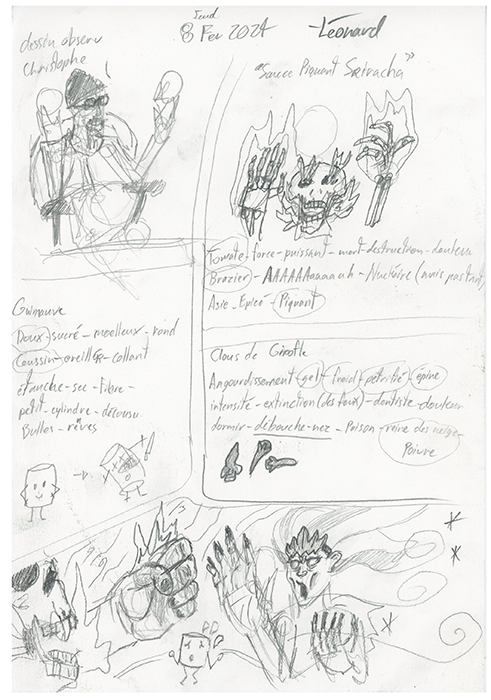 Jeud
8 Fev 2024
-Léonard
dessin observ
Christophe
"Sauce Piquant Sriracha"
Tomate - force - puissant - mort - destruction - douleur
Brazier - AAAAAAaaaaah - Nucléaire (mais pas trop)
Asie - Epicé - Piquant
Guimauve
Doux - sucré - moelleux - rond
Coussin - oreiller - collant
étanche - sec - fibre -
petit - cylindre - décousu
Bulles - rêves
Clous de Girofle
Angourdissement - gel - froid - pétrifié - épine
intensité - extinction (des feux) - dentiste - douleur
dormir - débouche-nez - Poison - reine des neige -
Poivre